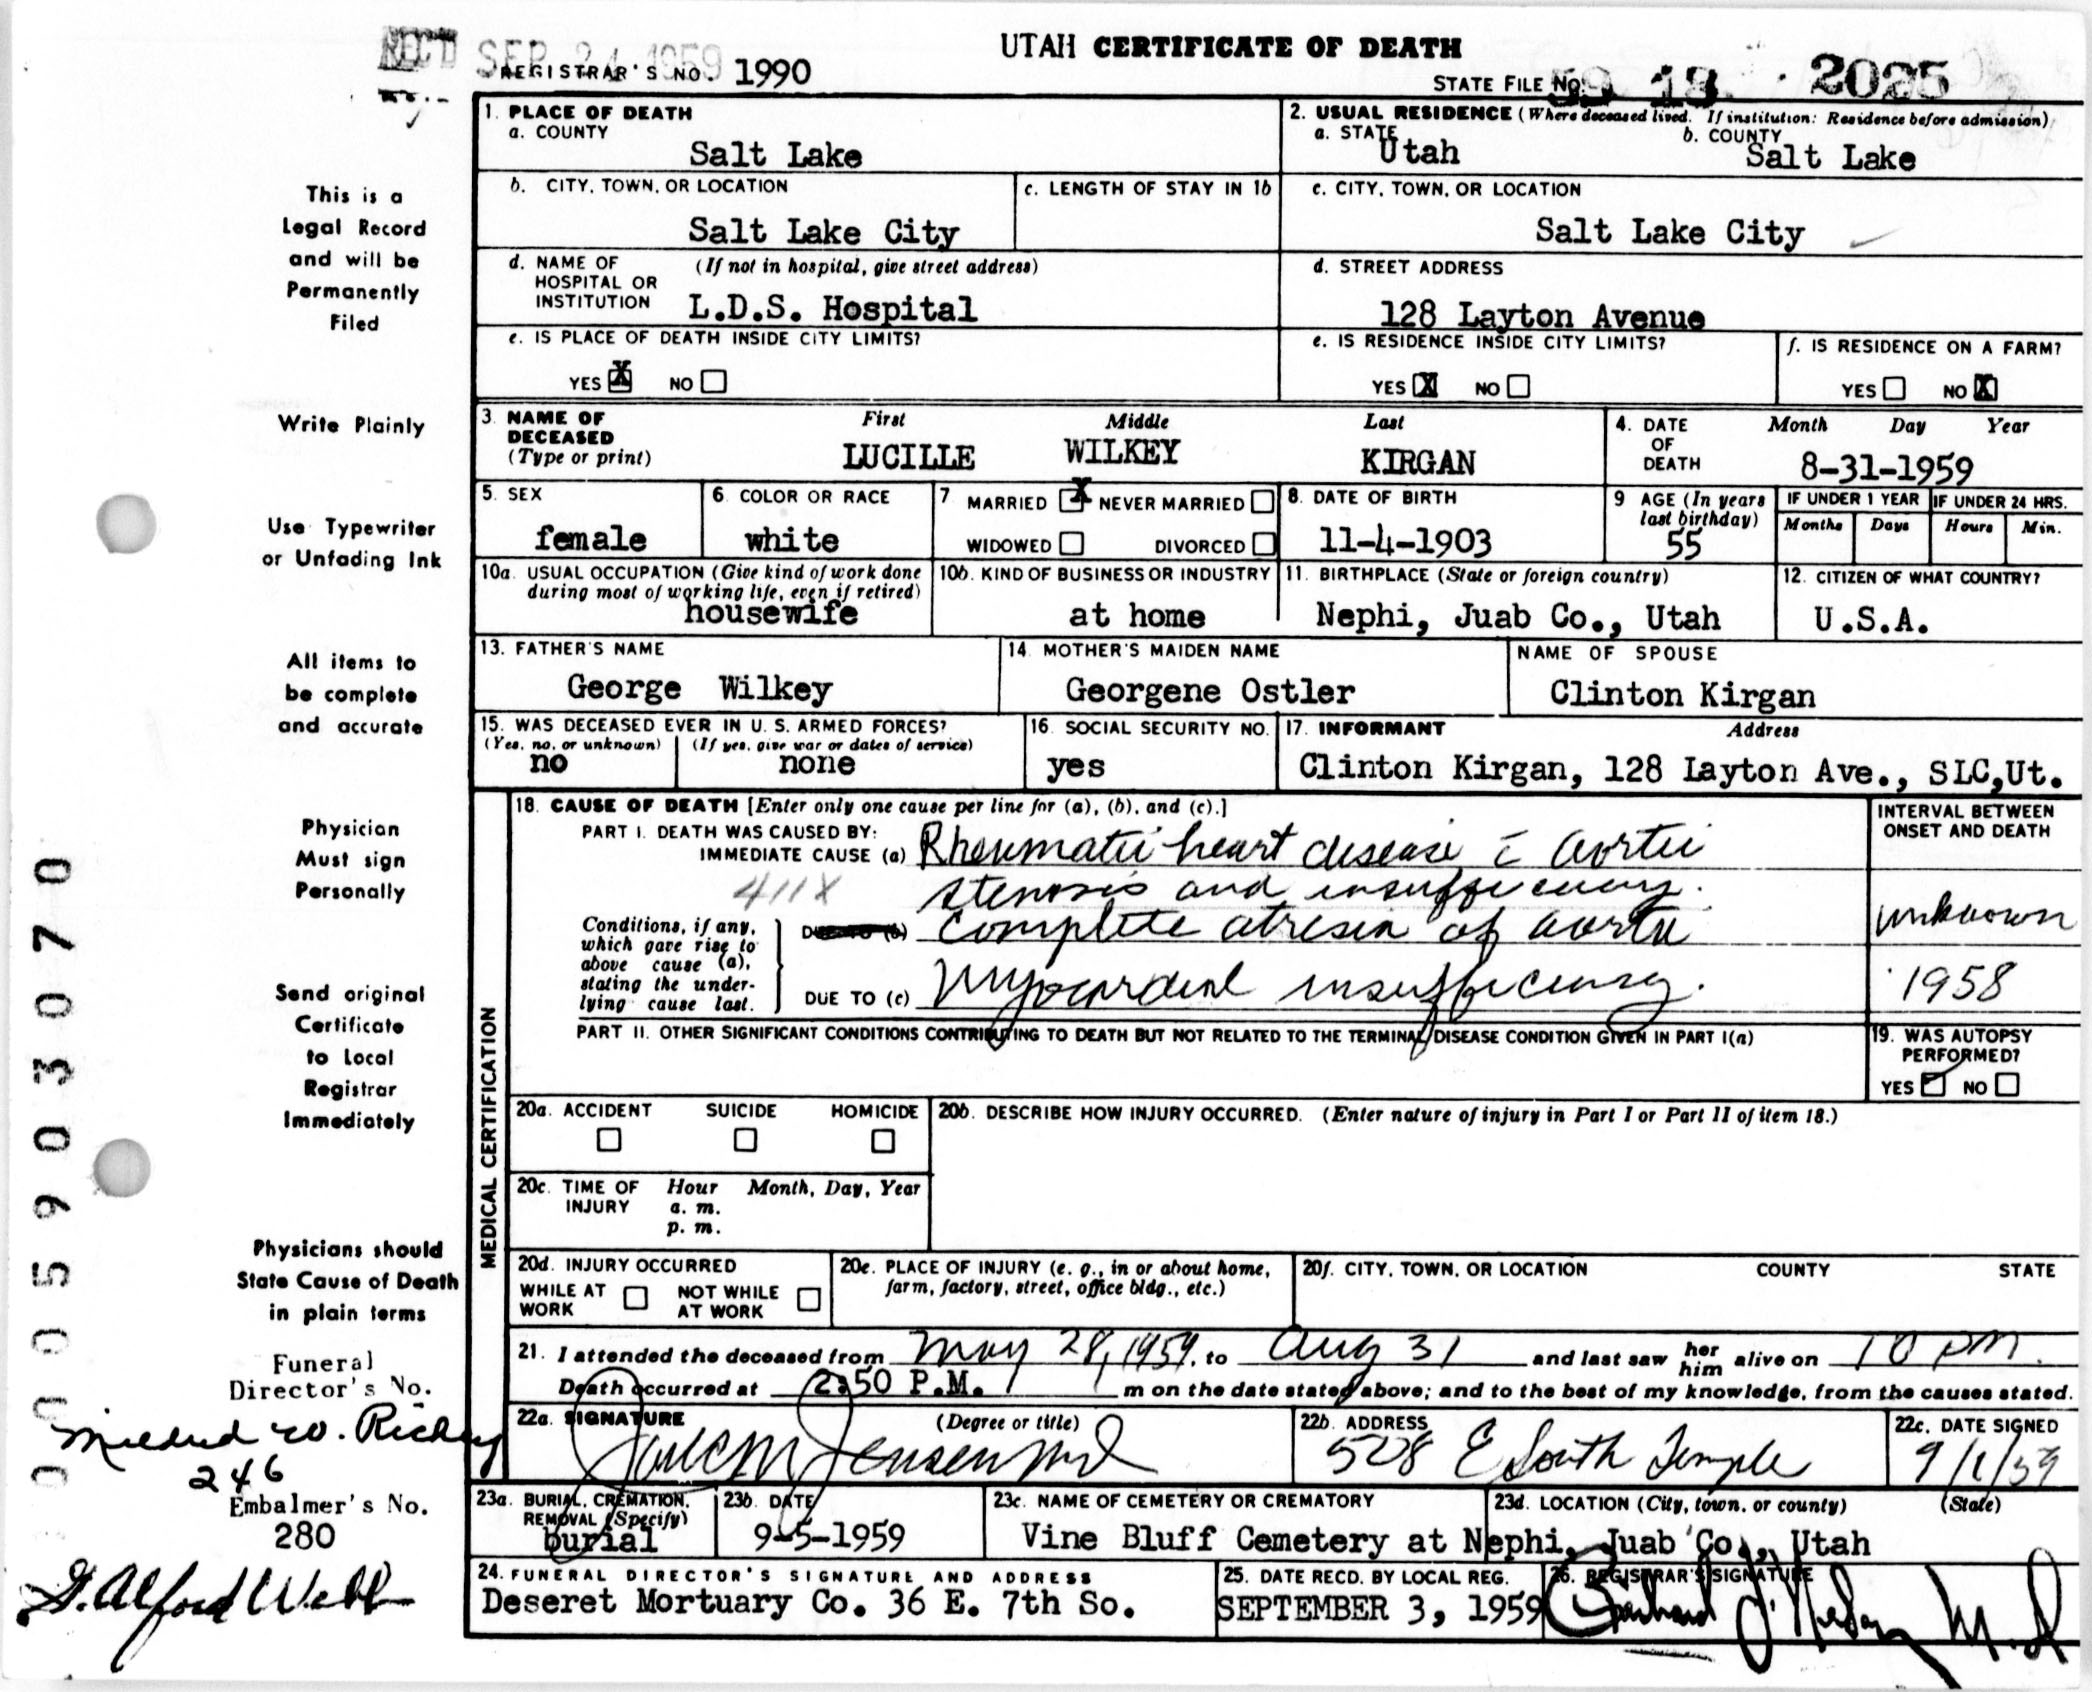 REC'D SEP 24 1959
UTAH CERTIFICATE OF DEATH
REGISTRAR'S NO. 1990
STATE FILE NO. 59 18 2025
1. PLACE OF DEATH
a. COUNTY
Salt Lake
2. USUAL RESIDENCE (Where deceased lived. If institution: Residence before admission)
a. STATE Utah b. COUNTY Salt Lake
b. CITY, TOWN, OR LOCATION
Salt Lake City
c. LENGTH OF STAY IN 1b
c. CITY, TOWN, OR LOCATION
Salt Lake City
d. NAME OF HOSPITAL OR INSTITUTION (If not in hospital, give street address)
L.D.S. Hospital
d. STREET ADDRESS
128 Layton Avenue
e. IS PLACE OF DEATH INSIDE CITY LIMITS?
YES X NO
e. IS RESIDENCE INSIDE CITY LIMITS?
YES X NO
f. IS RESIDENCE ON A FARM?
YES NO X
3. NAME OF DECEASED (Type or print)
First Middle Last
LUCILLE WILKEY KIRGAN
4. DATE OF DEATH Month Day Year
8-31-1959
5. SEX
female
6. COLOR OR RACE
white
7 MARRIED X NEVER MARRIED
WIDOWED DIVORCED
8. DATE OF BIRTH
11-4-1903
9 AGE (In years last birthday)
55
IF UNDER 1 YEAR IF UNDER 24 HRS.
Months Days Hours Min.
10a. USUAL OCCUPATION (Give kind of work done during most of working life, even if retired)
housewife
10b. KIND OF BUSINESS OR INDUSTRY
at home
11. BIRTHPLACE (State or foreign country)
Nephi, Juab Co., Utah
12. CITIZEN OF WHAT COUNTRY?
U.S.A.
13. FATHER'S NAME
George Wilkey
14. MOTHER'S MAIDEN NAME
Georgene Ostler
NAME OF SPOUSE
Clinton Kirgan
15. WAS DECEASED EVER IN U. S. ARMED FORCES?
(Yes, no, or unknown) (If yes, give war or dates of service)
no none
16. SOCIAL SECURITY NO.
yes
17. INFORMANT Address
Clinton Kirgan, 128 Layton Ave., SLC,Ut.
MEDICAL CERTIFICATION
18. CAUSE OF DEATH [Enter only one cause per line for (a), (b), and (c).]
INTERVAL BETWEEN ONSET AND DEATH
PART I. DEATH WAS CAUSED BY:
IMMEDIATE CAUSE (a) Rheumatic heart disease c̄ aortic
411X stenosis and insufficiency.
Conditions, if any, which gave rise to above cause (a), stating the underlying cause last.
DUE TO (b) Complete atresia of aorta
unknown
DUE TO (c) Myocardial insufficiency.
1958
PART II. OTHER SIGNIFICANT CONDITIONS CONTRIBUTING TO DEATH BUT NOT RELATED TO THE TERMINAL DISEASE CONDITION GIVEN IN PART I(a)
19. WAS AUTOPSY PERFORMED?
YES NO
20a. ACCIDENT SUICIDE HOMICIDE
20b. DESCRIBE HOW INJURY OCCURRED. (Enter nature of injury in Part I or Part II of item 18.)
20c. TIME OF INJURY Hour Month, Day, Year
a. m.
p. m.
20d. INJURY OCCURRED
WHILE AT WORK NOT WHILE AT WORK
20e. PLACE OF INJURY (e. g., in or about home, farm, factory, street, office bldg., etc.)
20f. CITY, TOWN, OR LOCATION COUNTY STATE
21. I attended the deceased from May 28, 1959, to Aug 31 and last saw her him alive on 10 PM.
Death occurred at 2:50 P.M. m on the date stated above; and to the best of my knowledge, from the causes stated.
22a. SIGNATURE (Degree or title)
Jensen MD
22b. ADDRESS
528 E South Temple
22c. DATE SIGNED
9/1/59
23a. BURIAL, CREMATION, REMOVAL (Specify)
burial
23b. DATE
9-5-1959
23c. NAME OF CEMETERY OR CREMATORY
23d. LOCATION (City, town, or county) (State)
Vine Bluff Cemetery at Nephi, Juab Co., Utah
24. FUNERAL DIRECTOR'S SIGNATURE AND ADDRESS
Deseret Mortuary Co. 36 E. 7th So.
25. DATE RECD. BY LOCAL REG.
SEPTEMBER 3, 1959
26. REGISTRAR'S SIGNATURE
M.D
This is a
Legal Record
and will be
Permanently
Filed
Write Plainly
Use Typewriter
or Unfading Ink
All items to
be complete
and accurate
Physician
Must sign
Personally
Send original
Certificate
to Local
Registrar
Immediately
Physicians should
State Cause of Death
in plain terms
Funeral
Director's No.
Mildred W. Rickey
246
Embalmer's No.
280
G. Alford Webb
0005903070